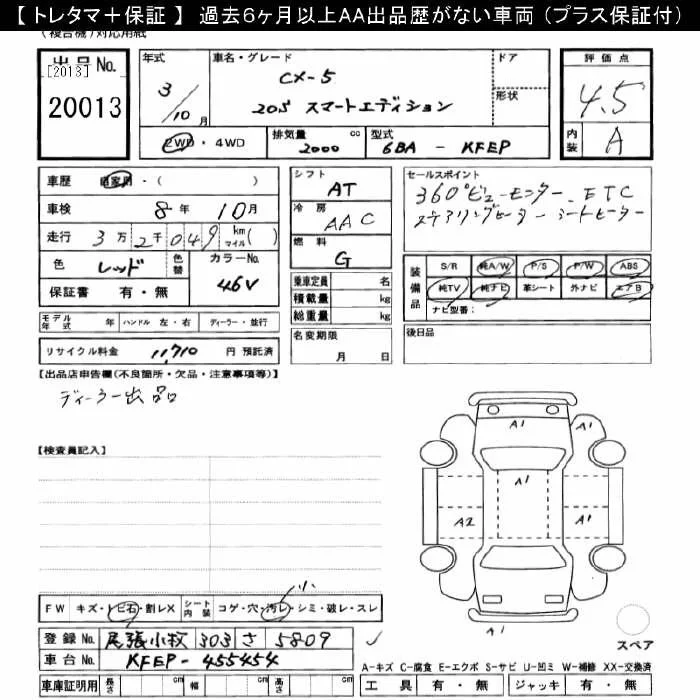 【 トレタマ＋保証 】 過去６ヶ月以上ＡＡ出品歴がない車両（プラス保証付）
（複合機）対応用紙
出品No. [2013] 20013
年式 3/10月
車名・グレード CX-5
20S スマートエディション
ドア
形状
評価点 4.5
内装 A
2WD・4WD
排気量 2000 cc
型式 6BA - KFEP
車歴 自家用・( )
車検 8年 10月
走行 3万2千049 km マイル( )
色 レッド 色替 カラーNo. 46V
保証書 有・無
シフト AT
冷房 AAC
燃料 G
乗車定員 名
積載量 kg
総重量 kg
名変期限 月 日
セールスポイント
360°ビューモニター ETC
ステアリングヒーター シートヒーター
装備品 S/R 純A/W P/S P/W ABS
純TV 純ナビ 革シート 外ナビ エアB
ナビ型番：
後日品
モデル年式 年 ハンドル 左・右 ディーラー・並行
リサイクル料金 11,710 円 預託済
【出品店申告欄(不良箇所・欠品・注意事項等)】
ディーラー出品
【検査員記入】
A1 A1
A1
A2 A1
A1
FW キズ・トビ石・割レX シート内装 コゲ・穴・汚レ・シミ・破レ・スレ
登録No. 尾張小牧 303 さ 5809
車台No. KFEP-455454
車庫証明用 長さ cm 幅 cm 高さ cm
スペア
A-キズ C-腐食 E-エクボ S-サビ U-凹ミ W-補修 XX-交換済
工具 有・無 ジャッキ 有・無